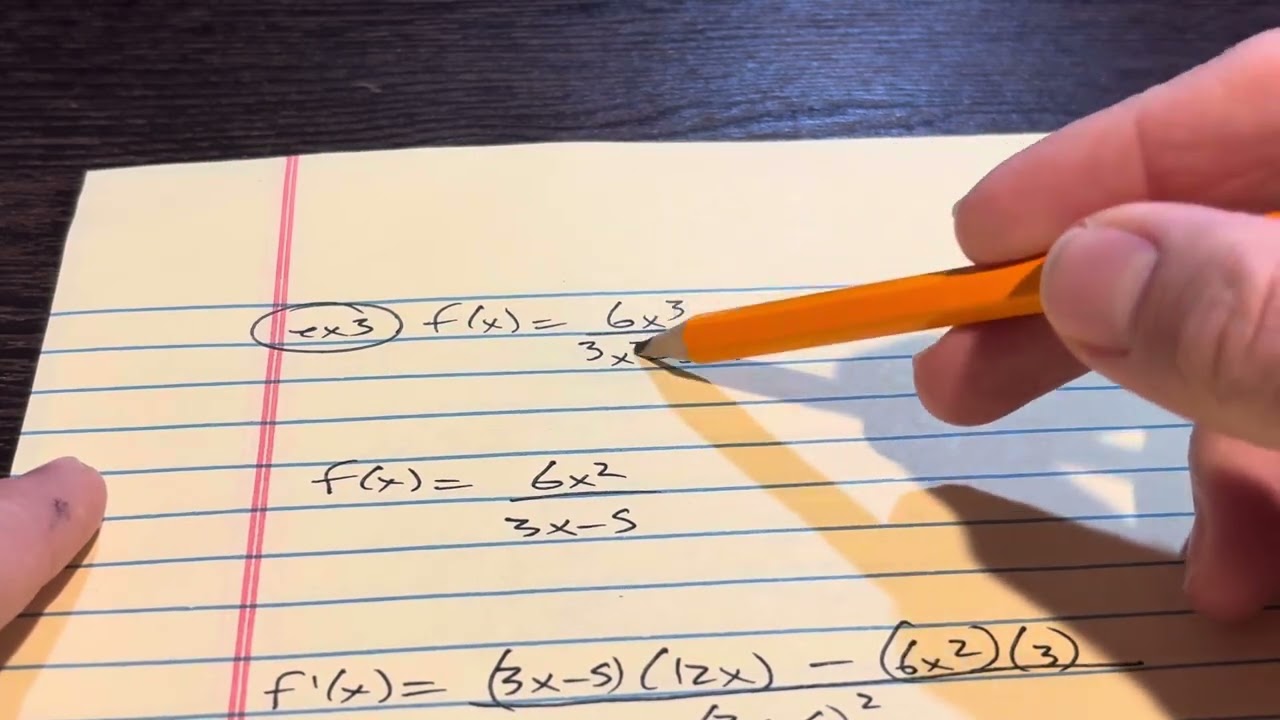 ex3 f(x) = 6x³ / 3x
f(x) = 6x² / 3x-5
f'(x) = (3x-5)(12x) - (6x²)(3)